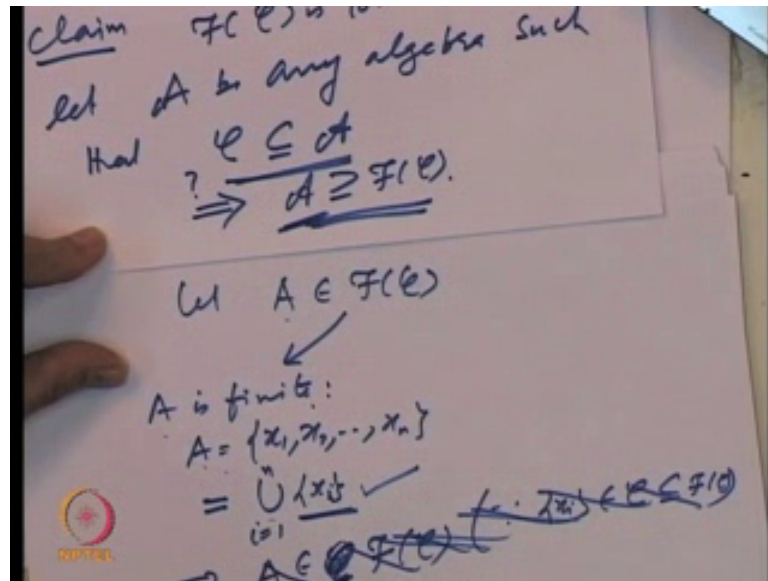 Claim F(C) is
let A be any algebra such
that C ⊆ A
? ⇒ A ⊇ F(C).
Let A ∈ F(C)
A is finite:
A = {x₁, x₂, .., xₙ}
= ⋃ᵢ₌₁ⁿ {xᵢ} ✓
⇒ A ∈ F(C) (∵ {xᵢ} ∈ C ⊆ F(C)
NPTEL